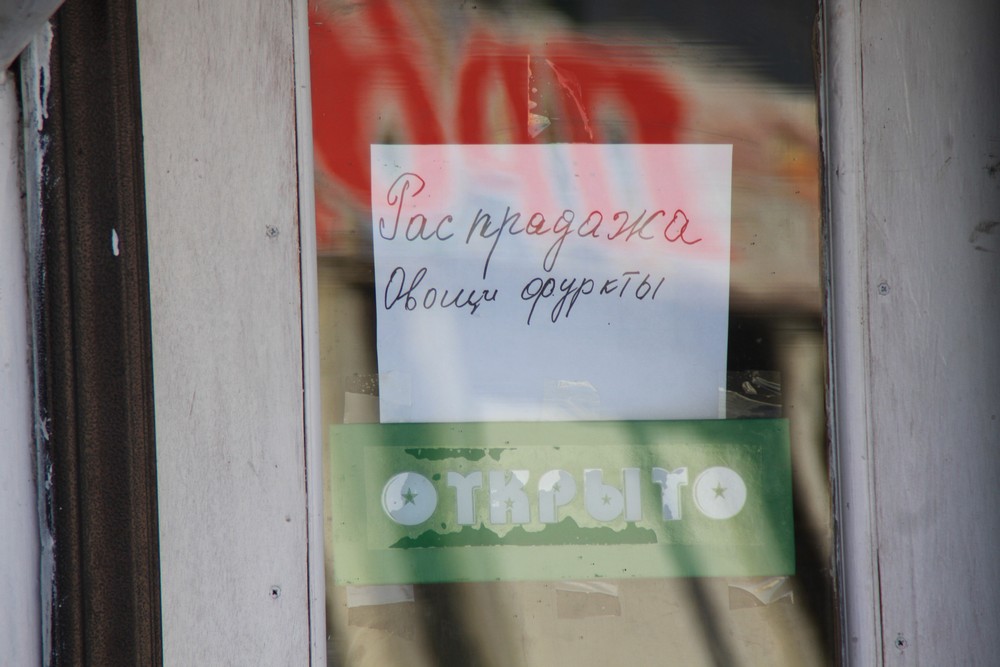 Распродажа
Овощи фуркты
ОТКРЫТО